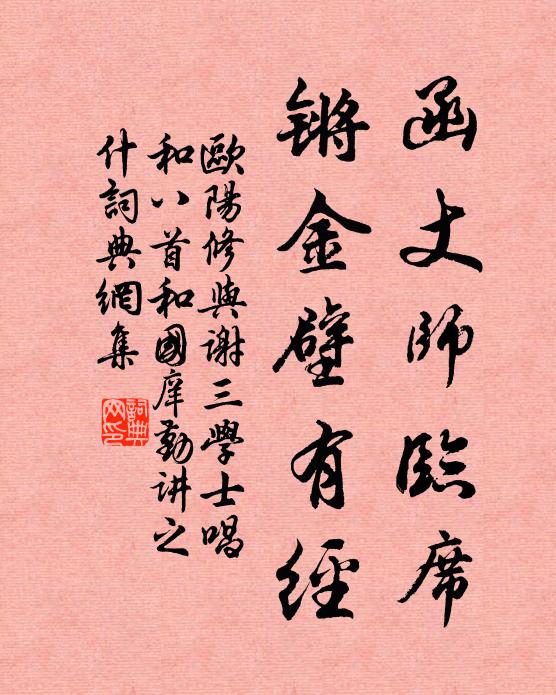 函丈師臨席
鏘金壁有經
歐陽修與謝三學士唱
和八首和國庠勤讲之
什詞典網集
詞典网印